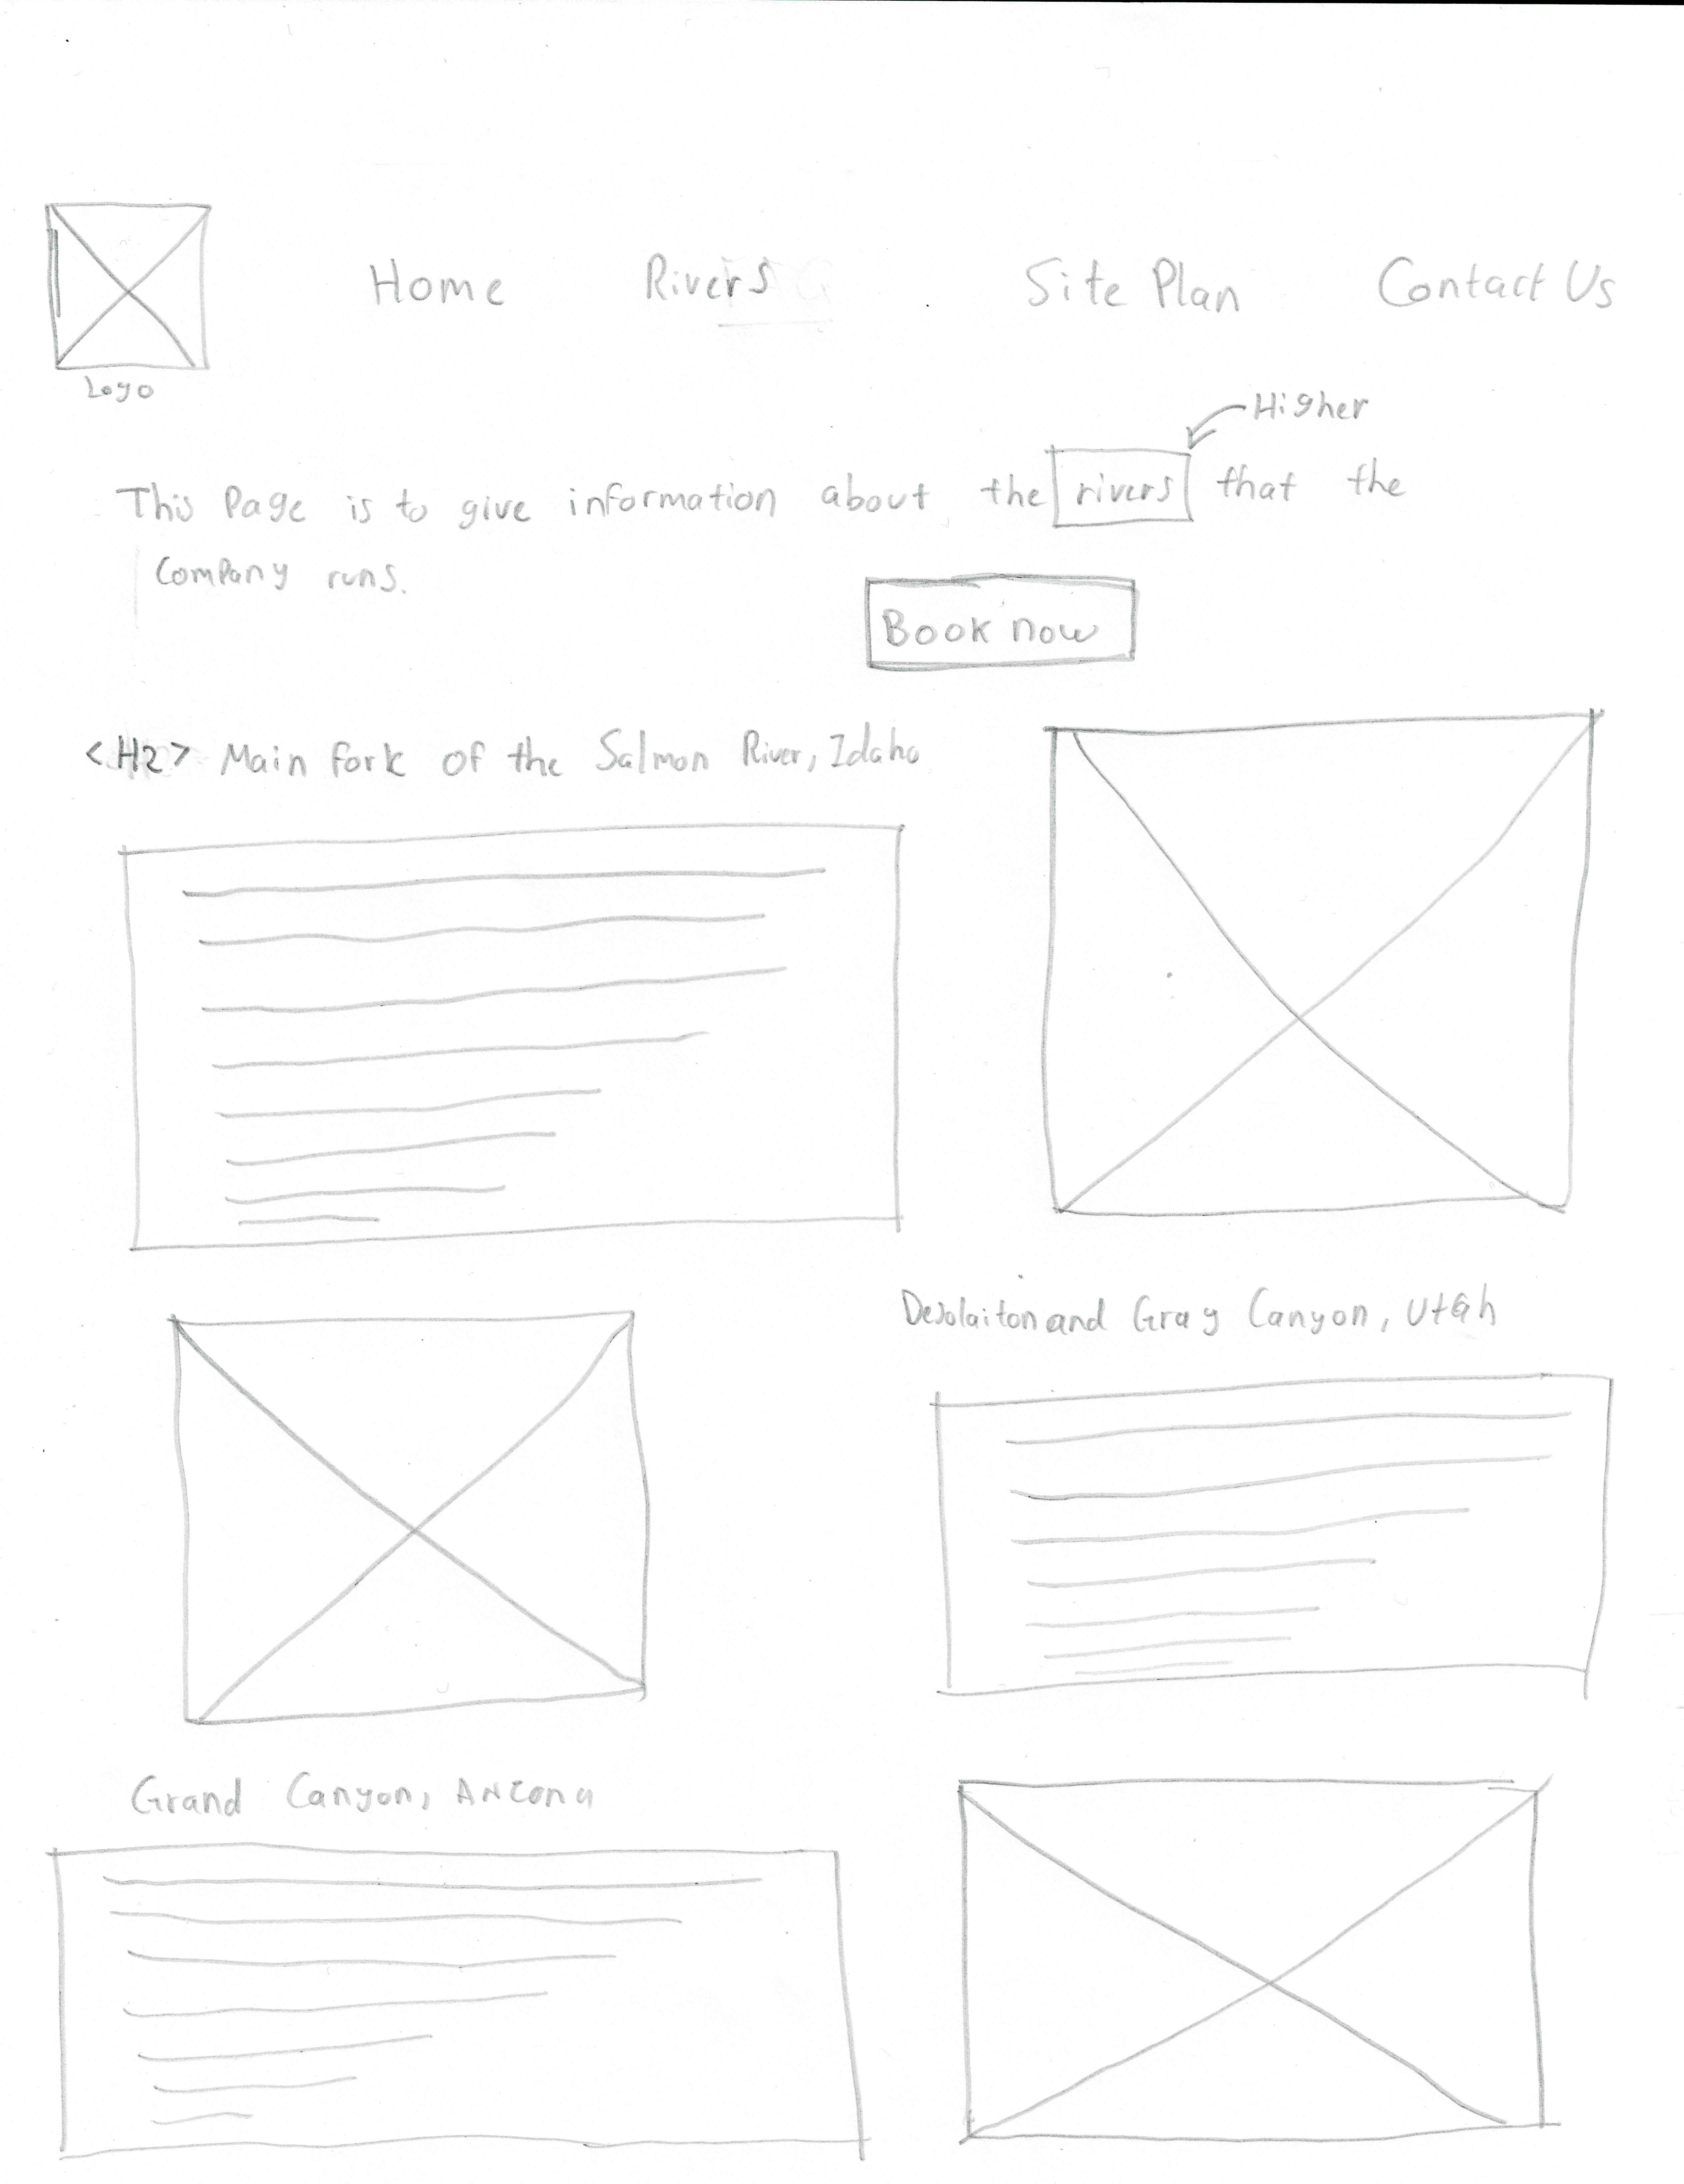 Home Rivers Site Plan Contact Us
Logo
Higher
This Page is to give information about the rivers that the
Company runs.
Book now
<H2> Main fork of the Salmon River, Idaho
Desolaiton and Gray Canyon, Utah
Grand Canyon, Arizona